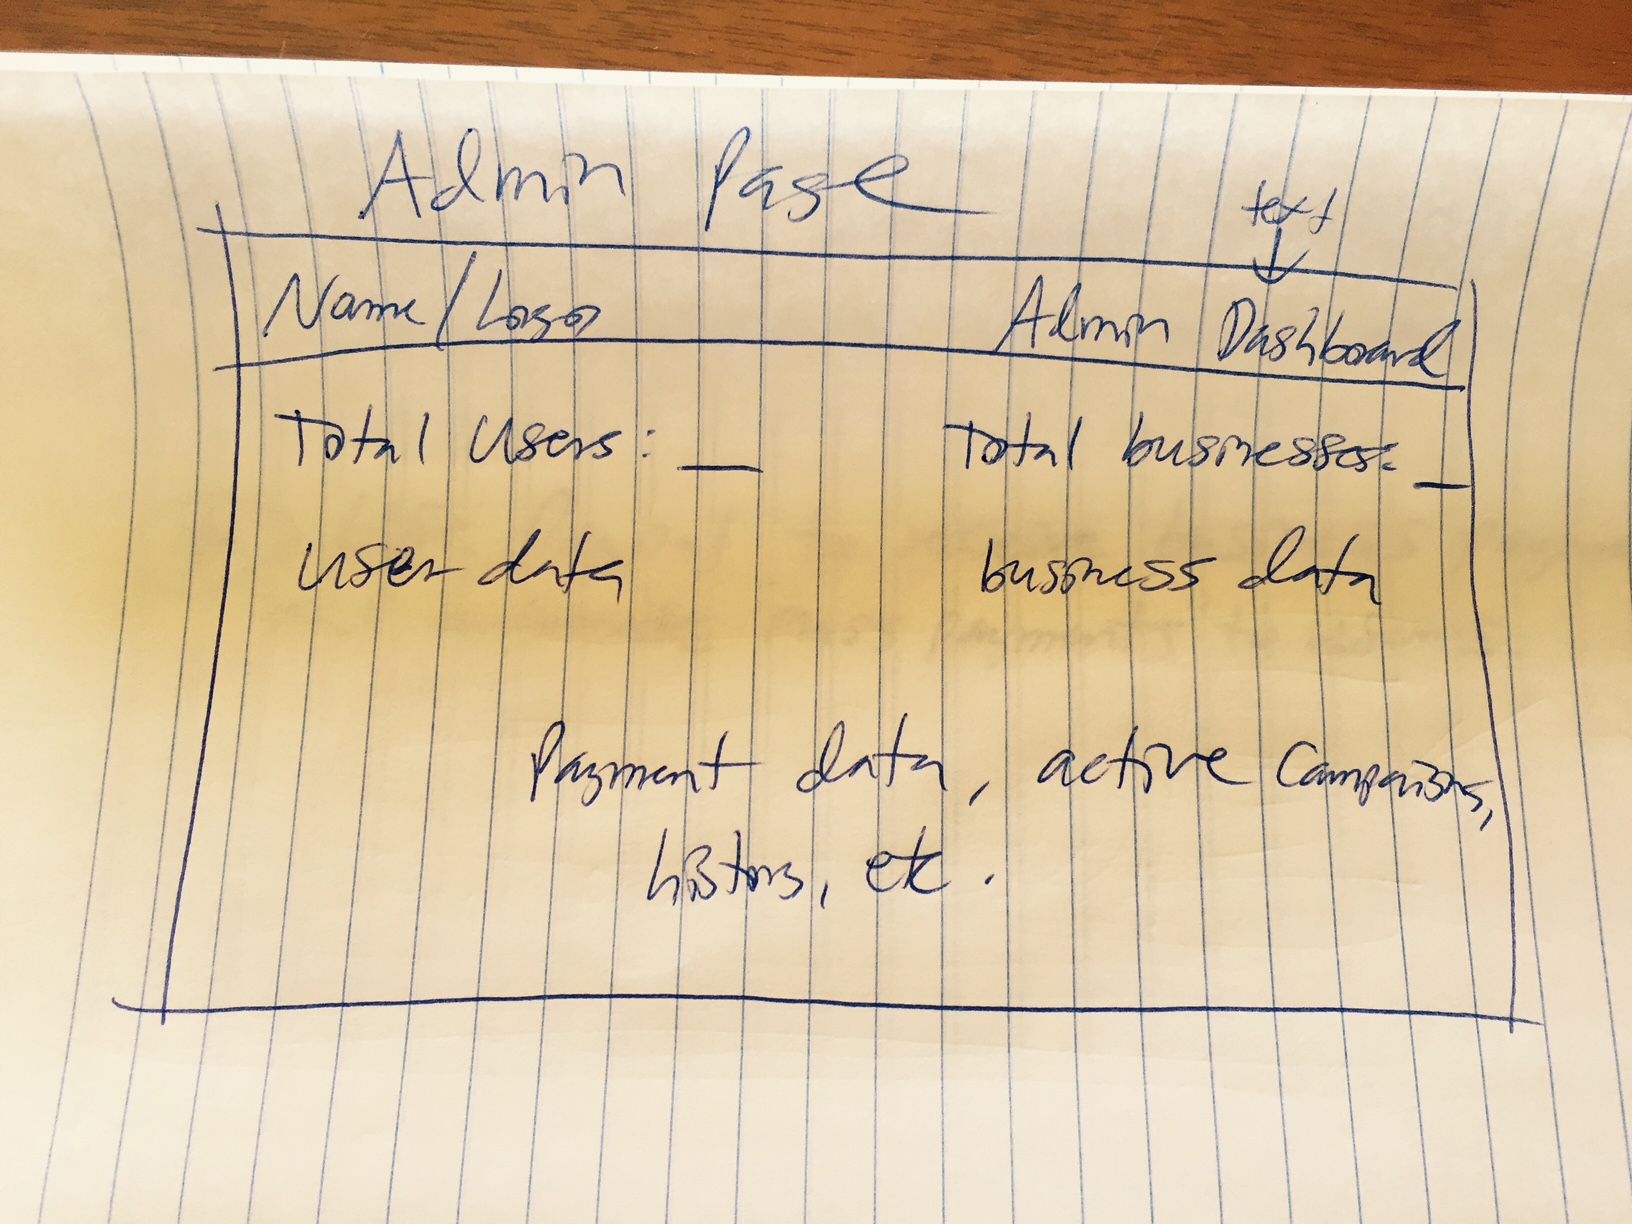 Admin Page
text
Name/Logo Admin Dashboard
Total Users: __ Total businesses: _
user data business data
Payment data, active campaigns,
history, etc.